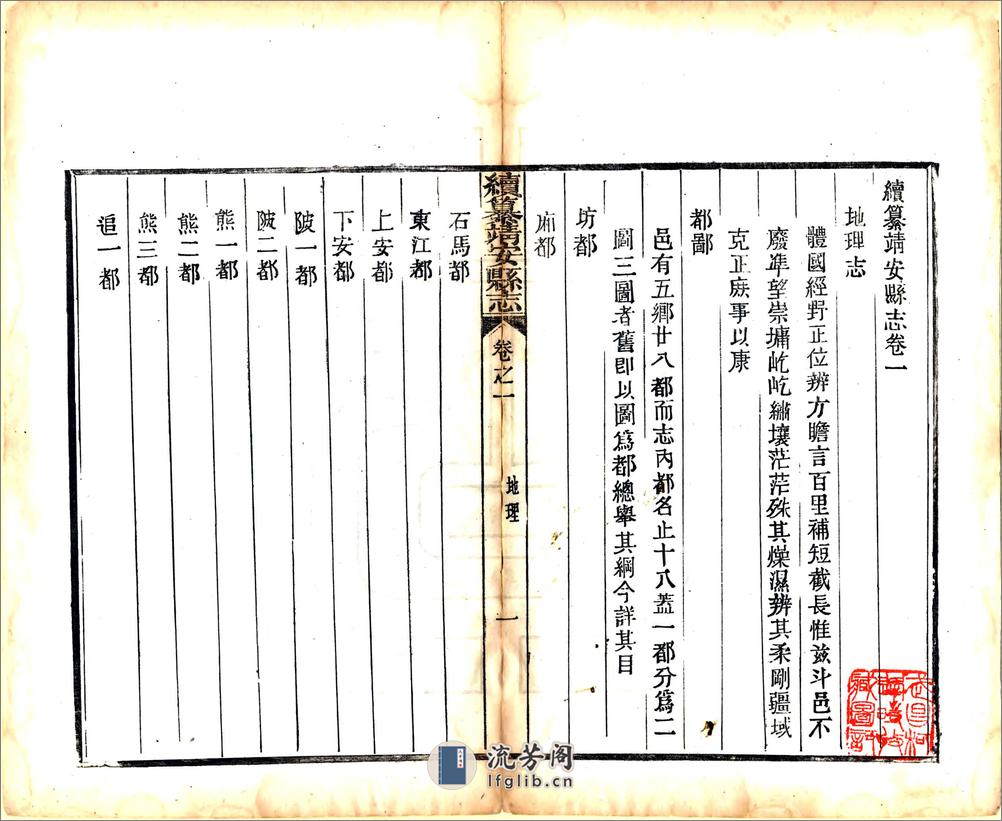 續纂靖安縣志卷一
地理志
體國經野正位辨方瞻言百里補短截長惟兹斗邑不
廢準望崇墉屹屹繡壤茫茫殊其燥濕辨其柔剛疆域
克正庶事以康
都鄙
邑有五鄉廿八都而志內都名止十八蓋一都分爲二
圖三圖者舊即以圖爲都總舉其綱今詳其目
坊都
廂都
續纂靖安縣志
卷之一
地理
一
石馬都
東江都
上安都
下安都
陂一都
陂二都
熊一都
熊二都
熊三都
追一都
流芳阁
lfglib.cn